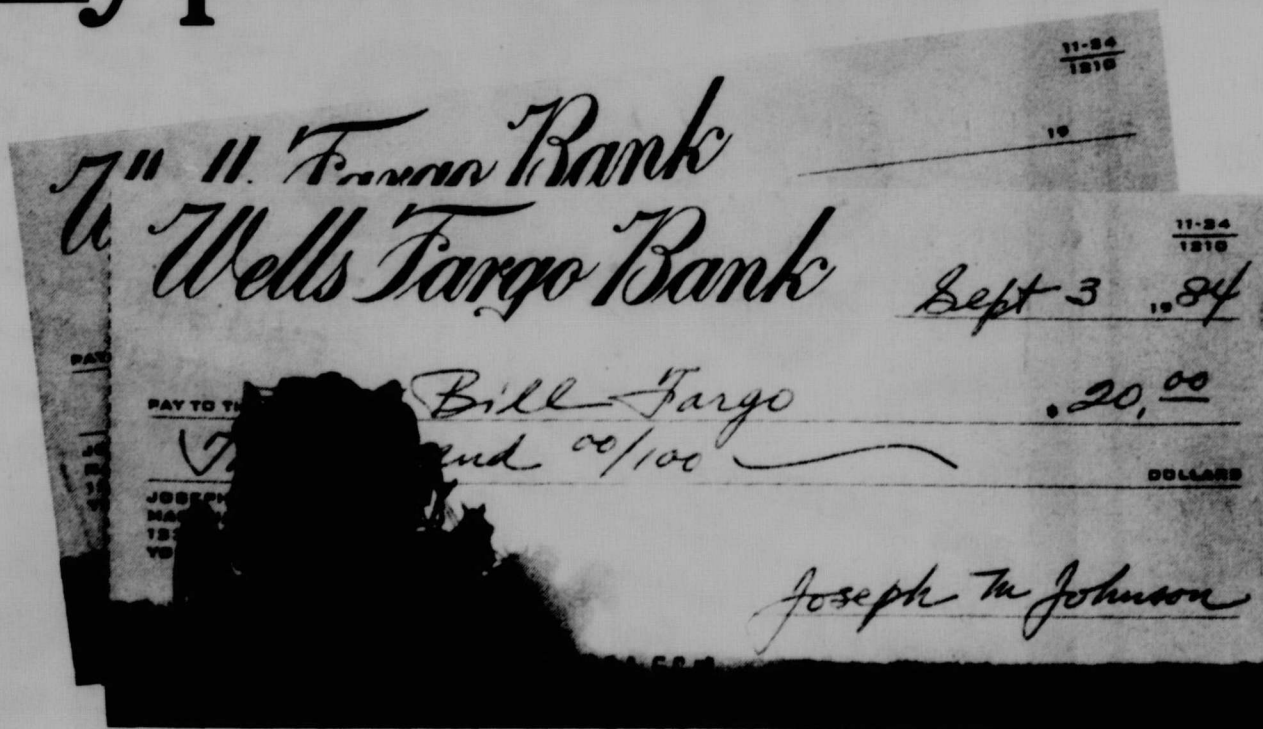 yp
11-24
1210
Fargo Bank
19
Wells Fargo Bank
11-24
1210
Sept 3 , 19 84
PAY TO
Bill Fargo
. 20, 00
and 00/100
DOLLARS
JOSEPH
Joseph M Johnson